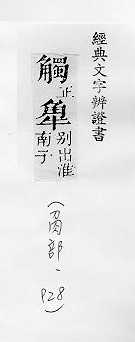 經典文字辨證書
觸正
別出淮
南子
(角部、928)